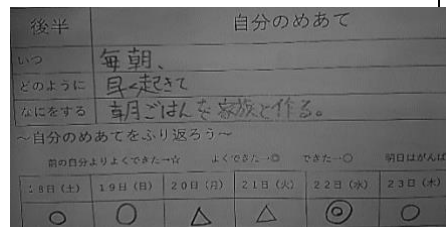 後半 自分のめあて
いつ 毎朝、
どのように 早く起きて
なにをする 朝ごはんを家族と作る。
～自分のめあてをふり返ろう～
前の日分よりよくできた→☆ よくできた→◎ できた→○ 明日はがんば
18日（土） 19日（日） 20日（月） 21日（火） 22日（水） 23日（木）
○ ○ △ △ ◎ ○